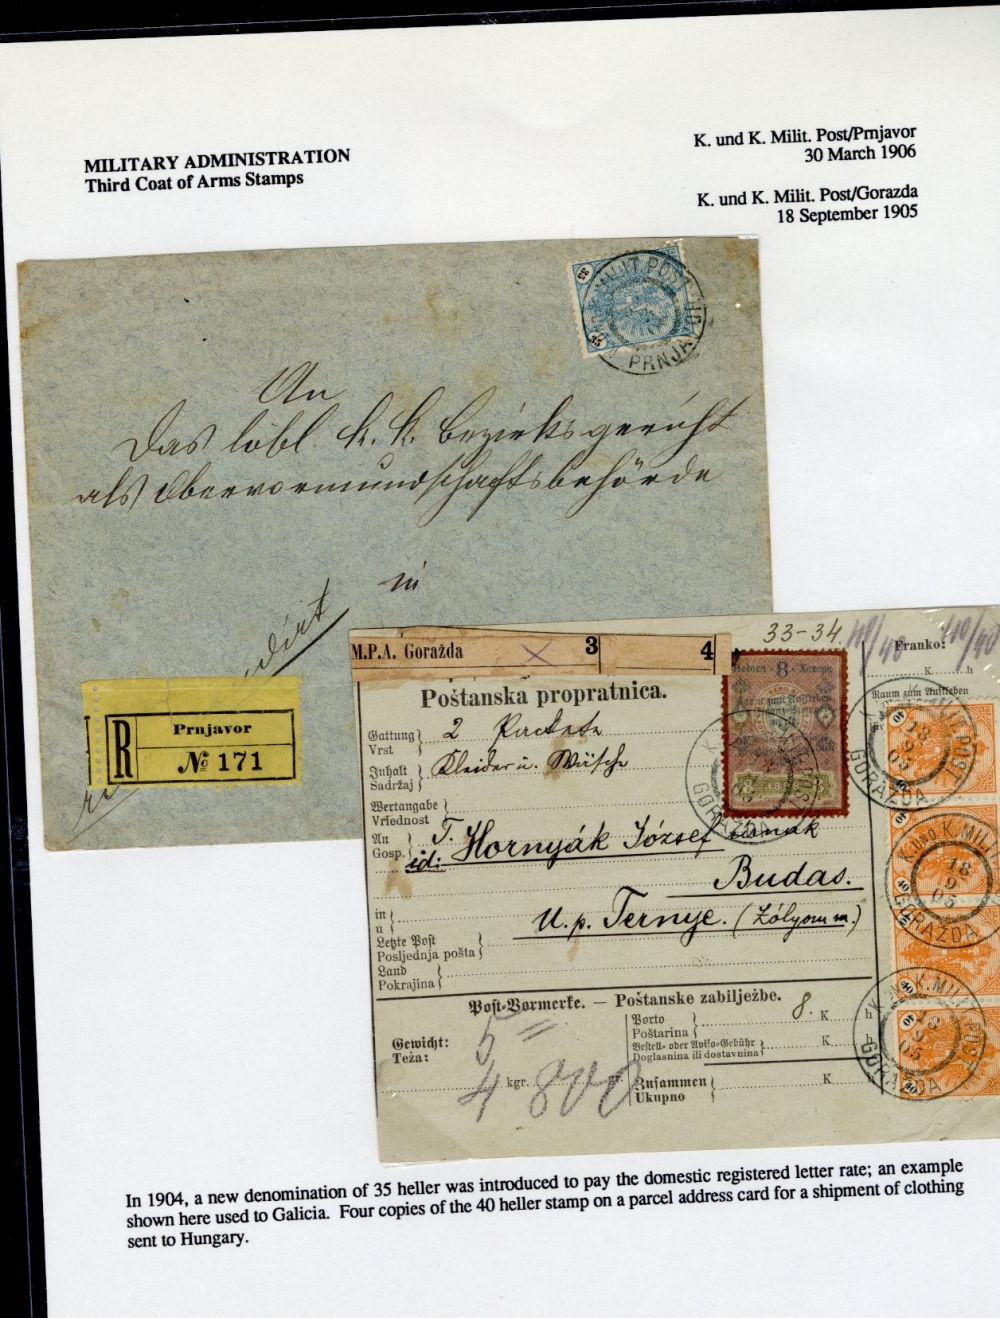 MILITARY ADMINISTRATION
Third Coat of Arms Stamps
K. und K. Milit. Post/Prnjavor
30 March 1906
K. und K. Milit. Post/Gorazda
18 September 1905
35
35
MILIT. POST
PRNJAVOR
An
Das löbl. k. k. Bezirksgericht
als Obervormundschaftsbehörde
in
R
Prnjavor
№ 171
M.P.A. Goražda
3
4
33-34.
Franko:
K h
Raum zum Aufkleben
Poštanska propratnica.
Gattung
Vrst
2 Packete
Inhalt
Sadržaj
Kleider u. Wäsche
Wertangabe
Vriednost
An
Gosp.
T.
id: Hornyák József
Budas.
in
u
U. p. Ternye. (Zólyom m.)
Letzte Post
Posljednja pošta
Land
Pokrajina
8
K. UND K. MILIT. POST
GORAŽDA
18
9
05
40
Post-Vormerke. — Poštanske zabilježbe.
Gewicht:
Teža:
5
4 kgr. 800
Porto
Poštarina
8. K h
Bestell- oder Aviso-Gebühr
Doglasnina ili dostavnina
K h
Zusammen
Ukupno
K
In 1904, a new denomination of 35 heller was introduced to pay the domestic registered letter rate; an example
shown here used to Galicia. Four copies of the 40 heller stamp on a parcel address card for a shipment of clothing
sent to Hungary.